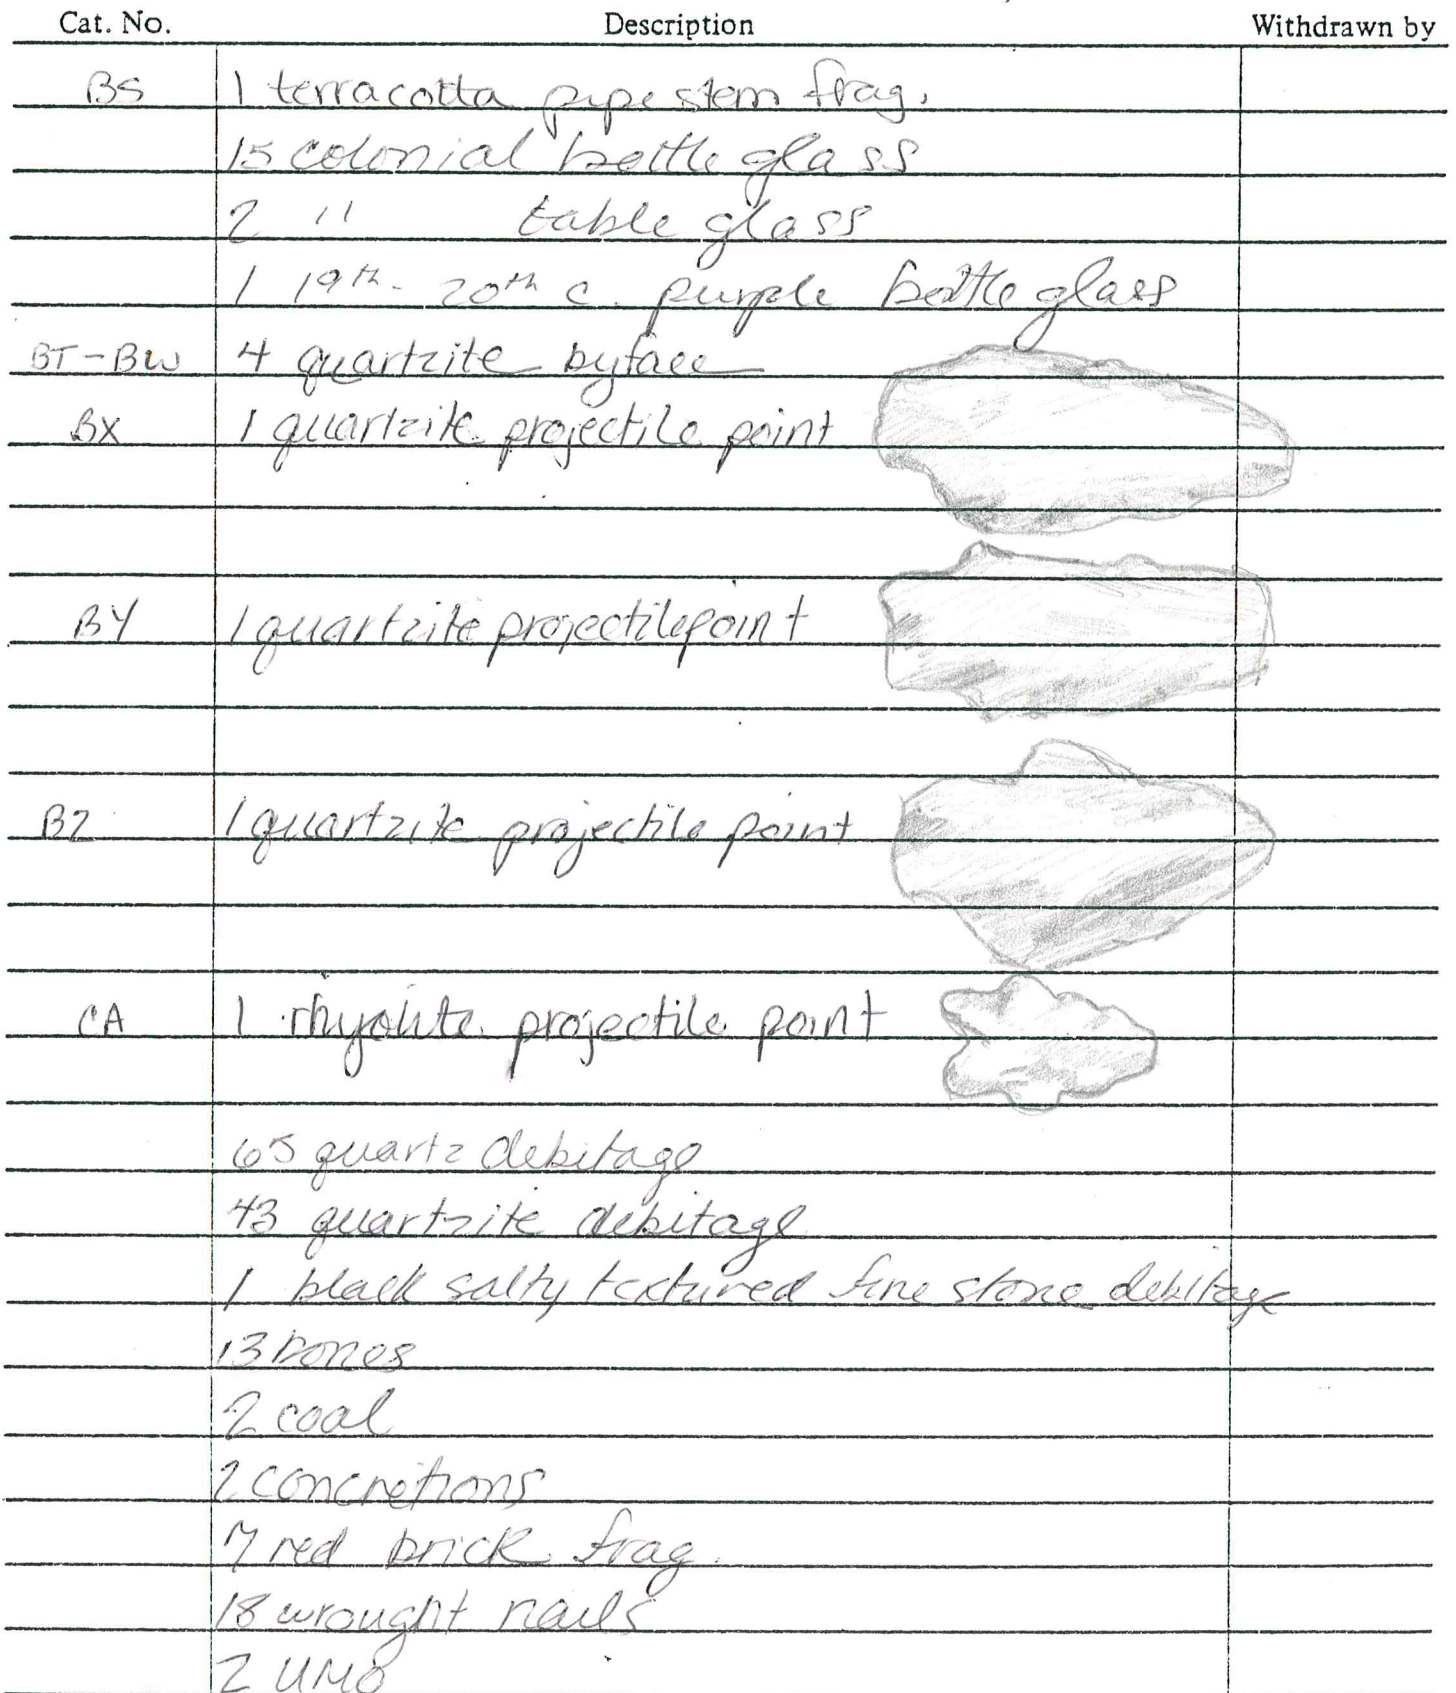 Cat. No. Description Withdrawn by
BS 1 terracotta pipe stem frag.
15 colonial bottle glass
2 " table glass
1 19th - 20th c. purple bottle glass
BT-BW 4 quartzite byface
BX 1 quartzite projectile point
BY 1 quartzite projectile point
BZ 1 quartzite projectile point
CA 1 rhyolite projectile point
65 quartz debitage
43 quartzite debitage
1 black salty textured fine stone debitage
13 bones
2 coal
2 concretions
7 red brick frag.
18 wrought nails
2 UMO